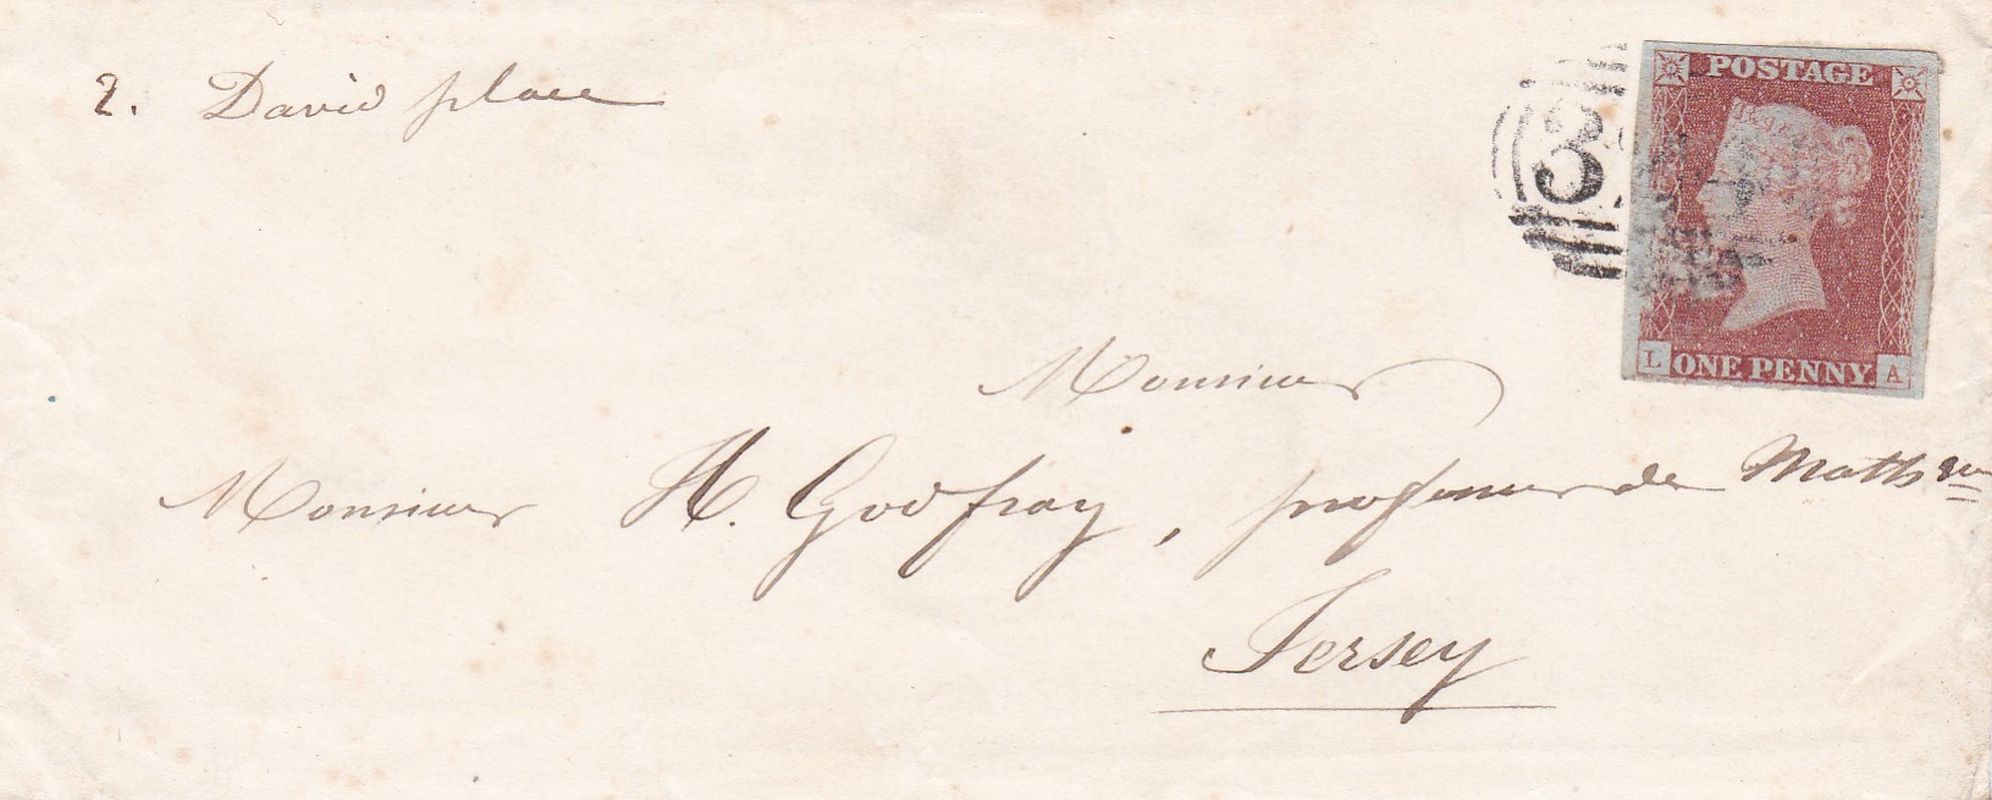 2. David place
POSTAGE
3
L ONE PENNY A
Monsieur
Monsieur H. Godfray, professeur de Maths
Jersey